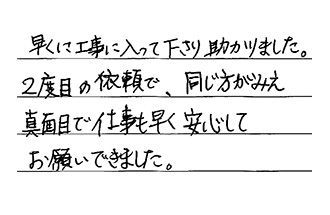 早くに工事に入って下さり助かりました。
2度目の依頼で、同じ方がみえ
真面目で仕事も早く安心して
お願いできました。